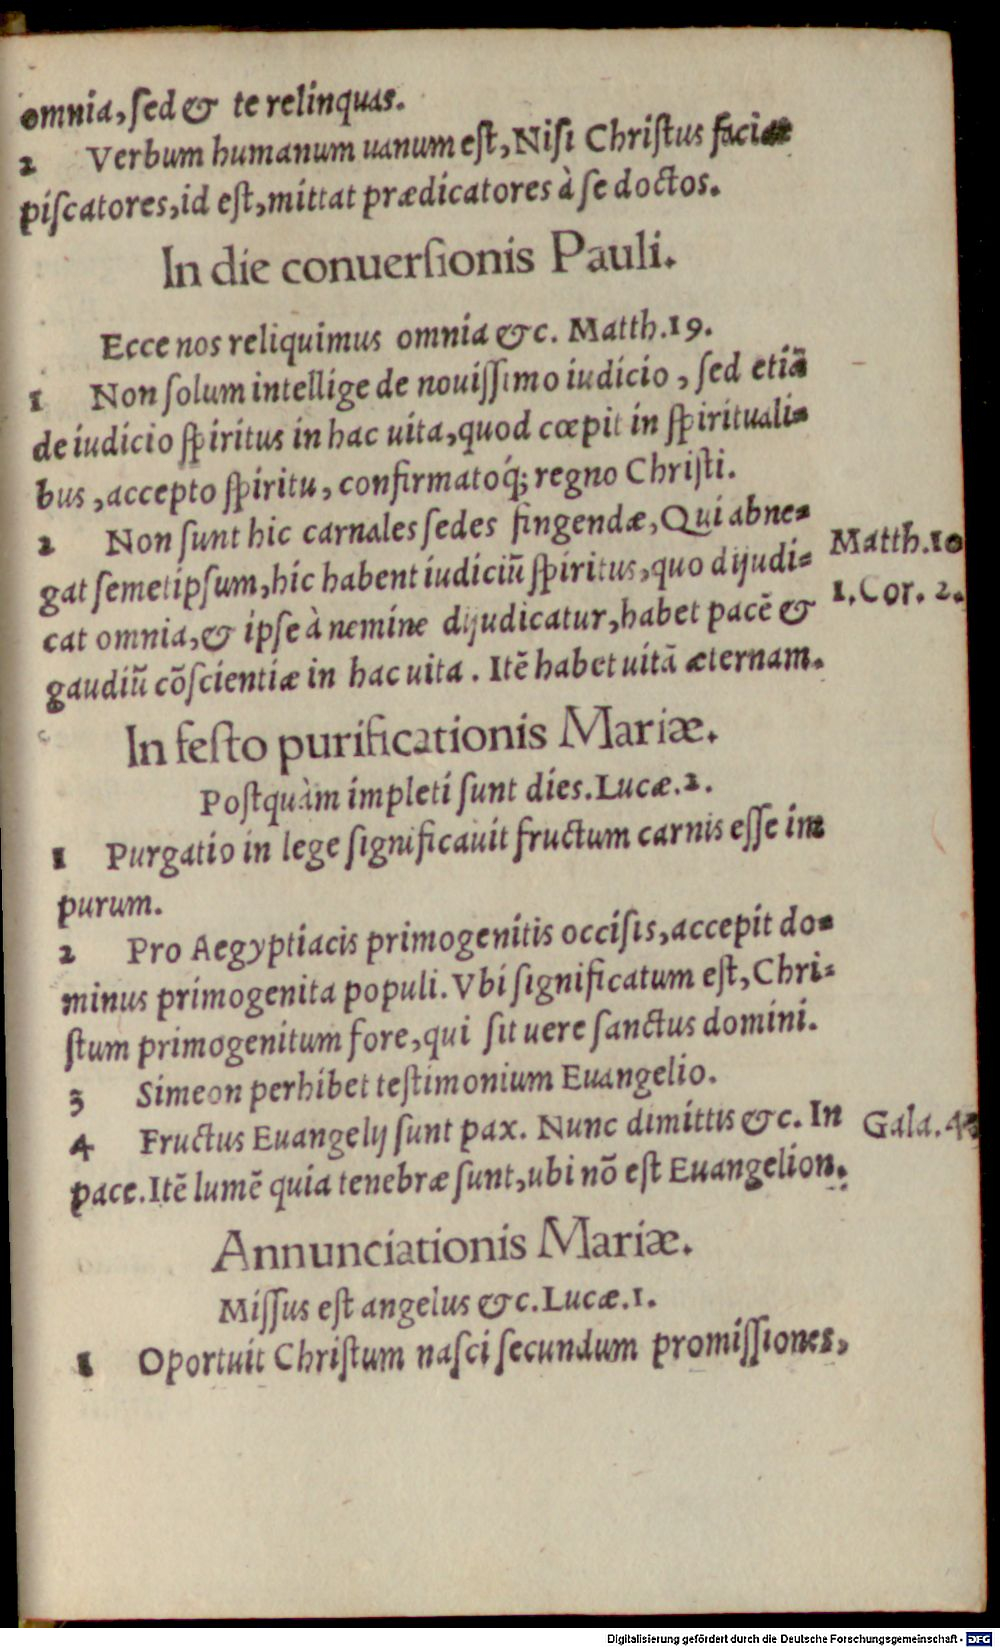 omnia, ſed & te relinquas.
2 Verbum humanum uanum eſt, Niſi Chriſtus faciat
piſcatores, id eſt, mittat prædicatores à ſe doctos.
In die conuerſionis Pauli.
Ecce nos reliquimus omnia &c. Matth. 19.
1 Non ſolum intellige de nouiſſimo iudicio, ſed etiã
de iudicio ſpiritus in hac uita, quod cœpit in ſpirituali=
bus, accepto ſpiritu, confirmatoq́; regno Chriſti.
2 Non ſunt hic carnales ſedes fingendæ, Qui abne=
gat ſemetipſum, hic habent iudiciũ ſpiritus, quo dijudi=
Matth. 10
cat omnia, & ipſe à nemine dijudicatur, habet pacẽ &
1. Cor. 2.
gaudiũ cõſcientiæ in hac uita. Itẽ habet uitã æternam.
In feſto purificationis Mariæ.
Poſtquàm impleti ſunt dies. Lucæ. 2.
1 Purgatio in lege ſignificauit fructum carnis eſſe im
purum.
2 Pro Aegyptiacis primogenitis occiſis, accepit do=
minus primogenita populi. Vbi ſignificatum eſt, Chri=
ſtum primogenitum fore, qui ſit uere ſanctus domini.
3 Simeon perhibet teſtimonium Euangelio.
4 Fructus Euangelij ſunt pax. Nunc dimittis &c. In
Gala.
pace. Itẽ lumẽ quia tenebræ ſunt, ubi nõ eſt Euangelion.
Annunciationis Mariæ.
Miſſus eſt angelus &c. Lucæ. 1.
1 Oportuit Chriſtum naſci ſecundum promiſſiones,
Digitalisierung gefördert durch die Deutsche Forschungsgemeinschaft - DFG